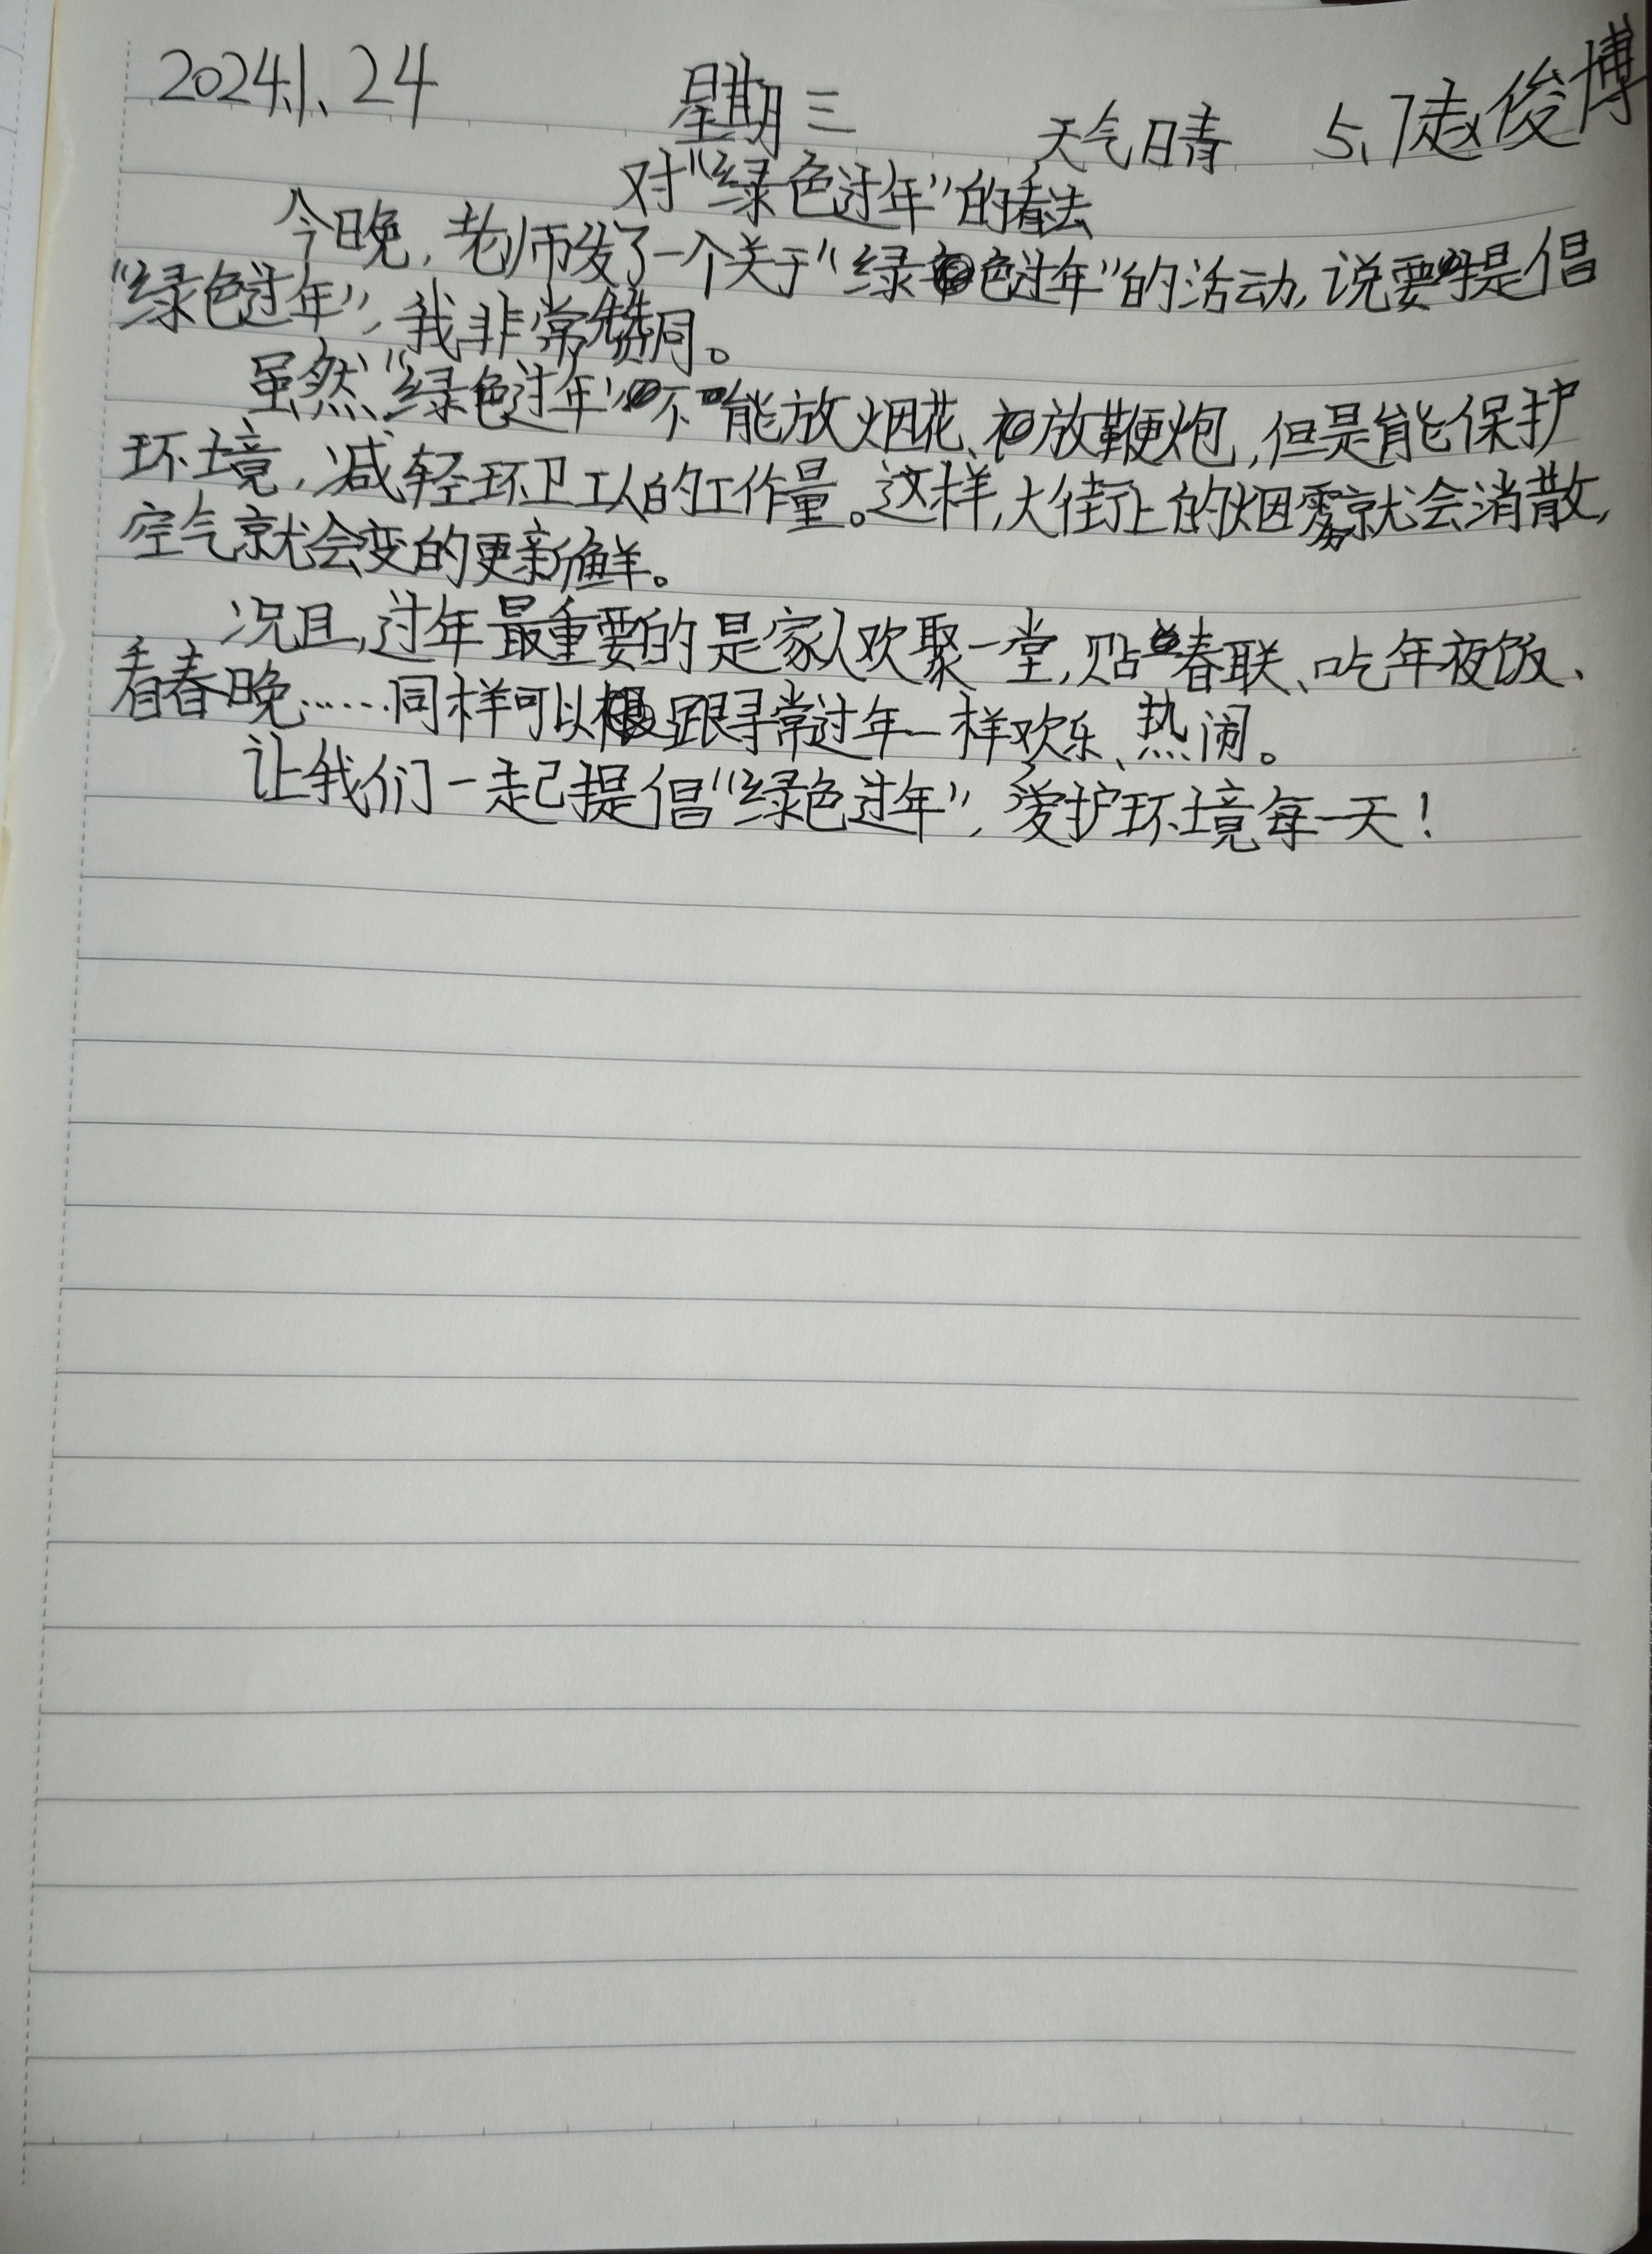 2024.1.24 星期三 天气晴 5.7赵俊博
对“绿色过年”的看法
今晚，老师发了一个关于“绿色过年”的活动，说要提倡
“绿色过年”，我非常赞同。
虽然“绿色过年”不能放烟花、放鞭炮，但是能保护
环境，减轻环卫工人的工作量。这样，大街上的烟雾就会消散，
空气就会变的更新鲜。
况且，过年最重要的是家人欢聚一堂，贴春联、吃年夜饭、
看春晚……同样可以跟寻常过年一样欢乐、热闹。
让我们一起提倡“绿色过年”，爱护环境每一天！